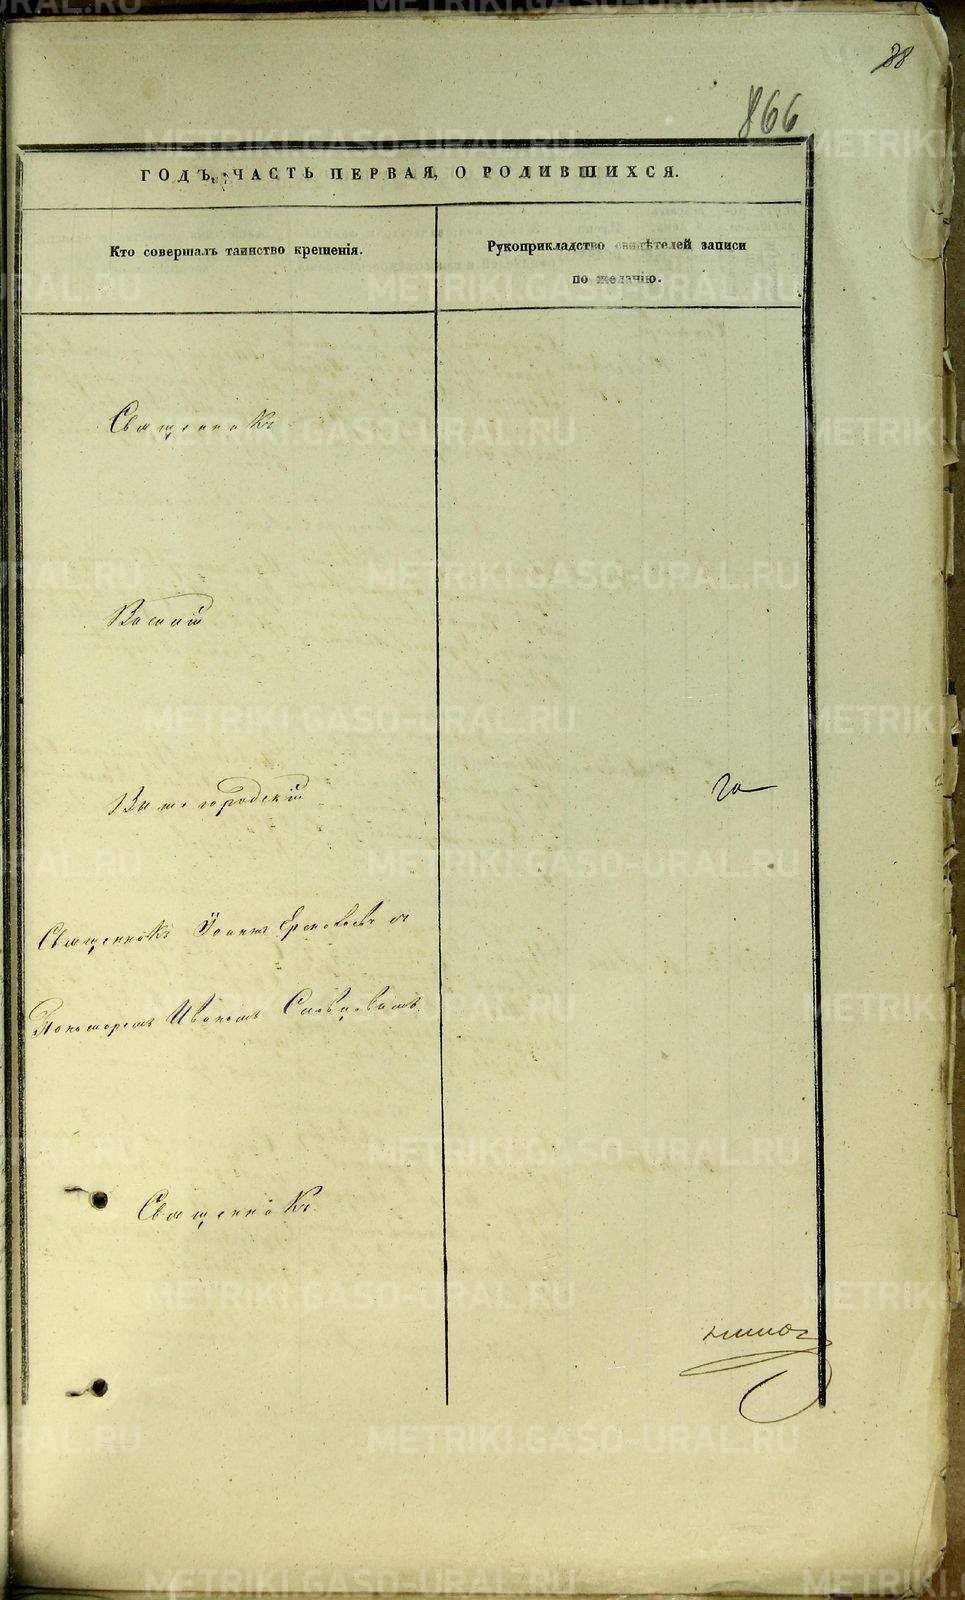 88
866
ГОДЪ, ЧАСТЬ ПЕРВАЯ, О РОДИВШИХСЯ.
Кто совершалъ таинство крещенія.
Рукоприкладство свидѣтелей записи
по желанію.
Священникъ
Василій
Вышегородскій
го
Священникъ Іоаннъ съ
Пономаремъ Иваномъ
Священникъ
METRIKI.GASO-URAL.RU